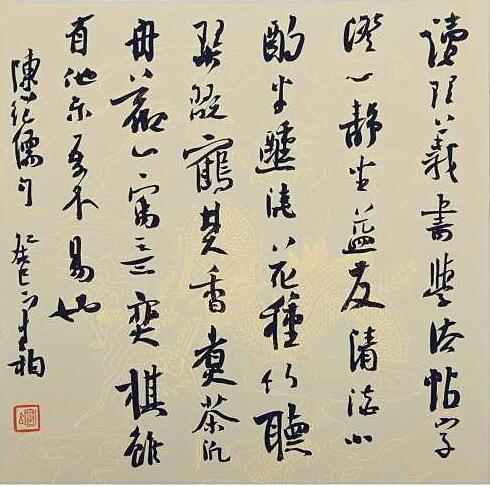 讀理義書學法帖字
澄心靜坐益友清談小
酌半醺澆花種竹聽
琴翫鶴焚香煮茶汎
舟觀山寓意奕棋雖
有他樂吾不易也
陳繼儒句 癸巳 柏